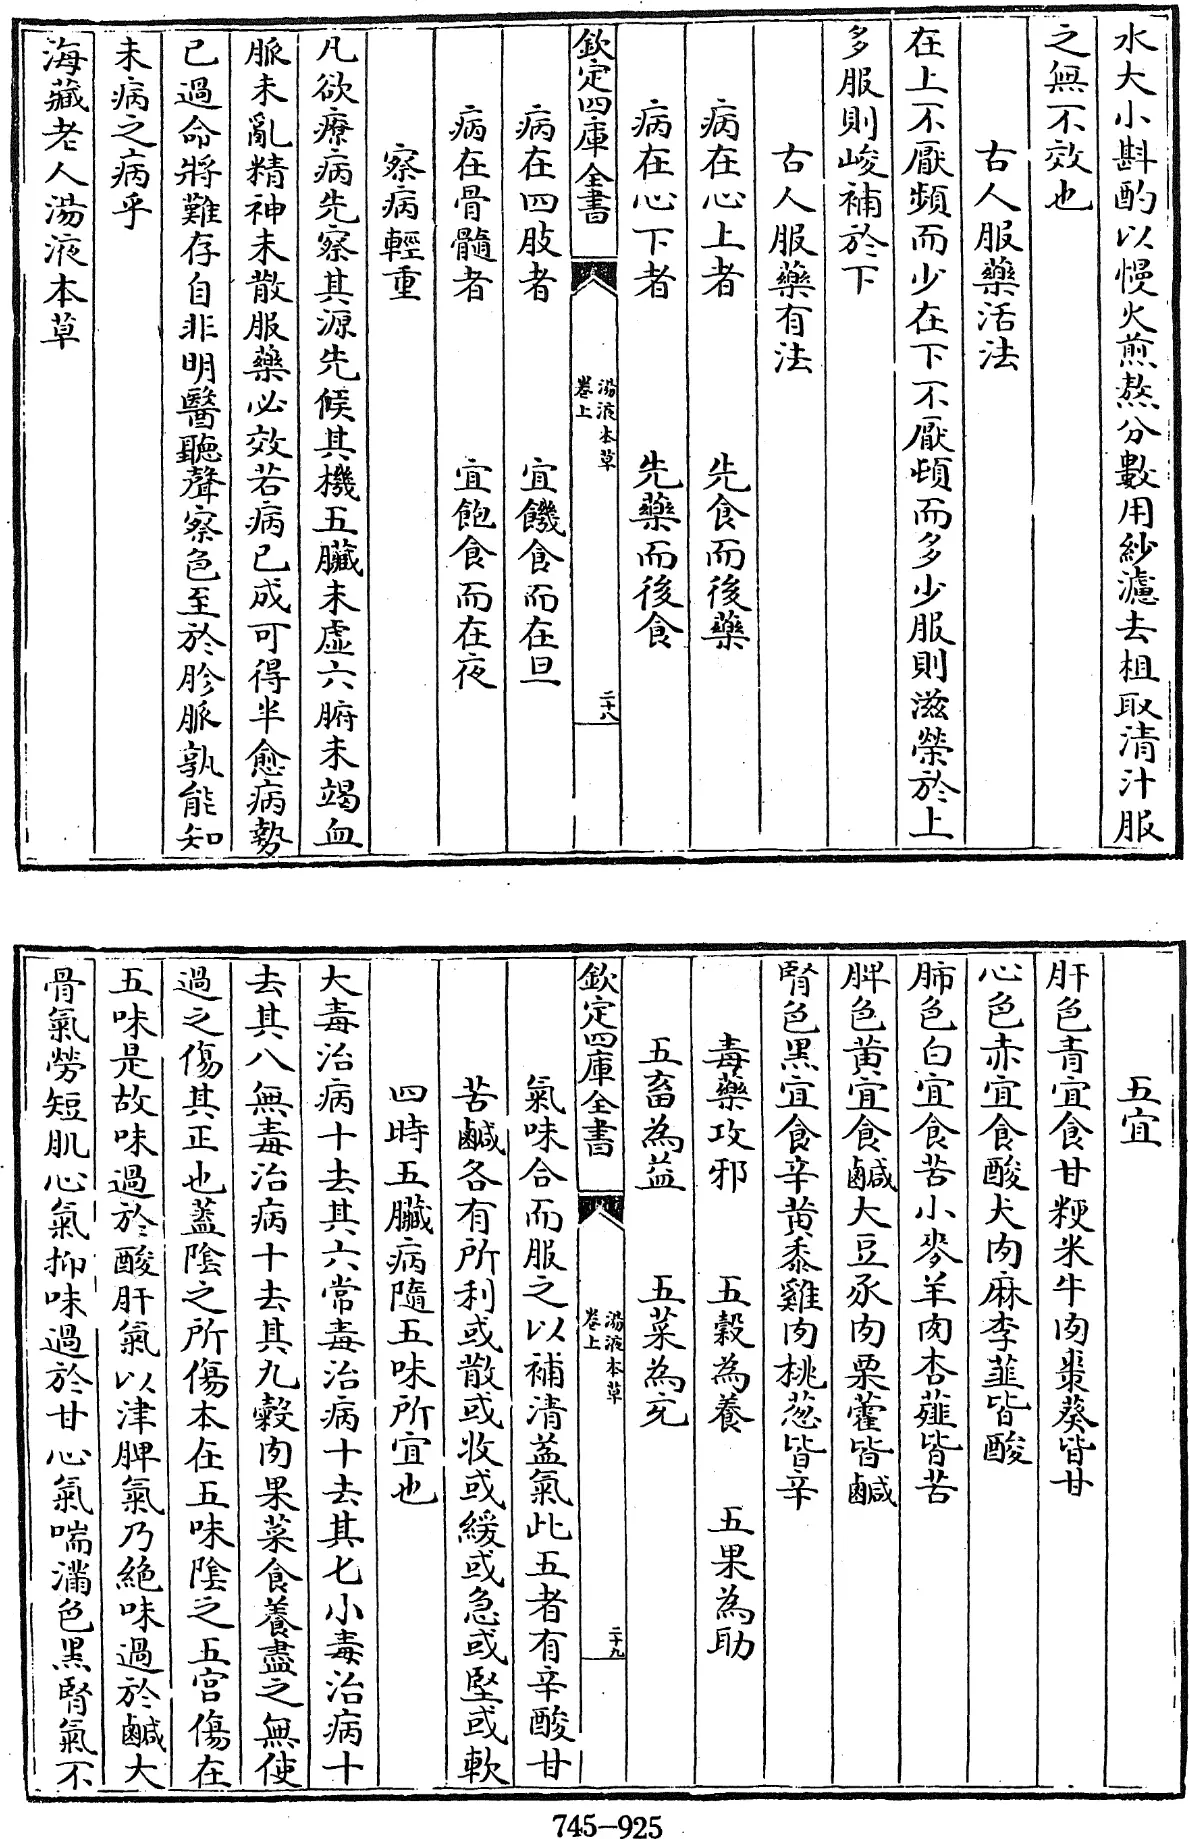 水大小斟酌以慢火煎熬分數用紗濾去柤取清汁服
之無不效也
古人服藥活法
在上不厭頻而少在下不厭頓而多少服則滋榮於上
多服則峻補於下
古人服藥有法
病在心上者 先食而後藥
病在心下者 先藥而後食
欽定四庫全書 湯液本草 卷上 二十八
病在四肢者 宜饑食而在旦
病在骨髓者 宜飽食而在夜
察病輕重
凡欲療病先察其源先候其機五臟未虛六腑未竭血
脈未亂精神未散服藥必效若病已成可得半愈病勢
已過命將難存自非明醫聽聲察色至於脈脈孰能知
未病之病乎
海藏老人湯液本草
五宜
肝色青宜食甘粳米牛肉棗葵皆甘
心色赤宜食酸犬肉麻李韭皆酸
肺色白宜食苦小麥羊肉杏薤皆苦
脾色黃宜食鹹大豆豕肉栗藿皆鹹
腎色黑宜食辛黃黍雞肉桃葱皆辛
毒藥攻邪 五穀為養 五果為助
五畜為益 五菜為充
欽定四庫全書 湯液本草 卷上 二十九
氣味合而服之以補清益氣此五者有辛酸甘
苦鹹各有所利或散或收或緩或急或堅或軟
四時五臟病隨五味所宜也
大毒治病十去其六常毒治病十去其七小毒治病十
去其八無毒治病十去其九穀肉果菜食養盡之無使
過之傷其正也蓋陰之所傷本在五味陰之五宮傷在
五味是故味過於酸肝氣以津脾氣乃絶味過於鹹大
骨氣勞短肌心氣抑味過於甘心氣喘滿色黑腎氣不
745-925